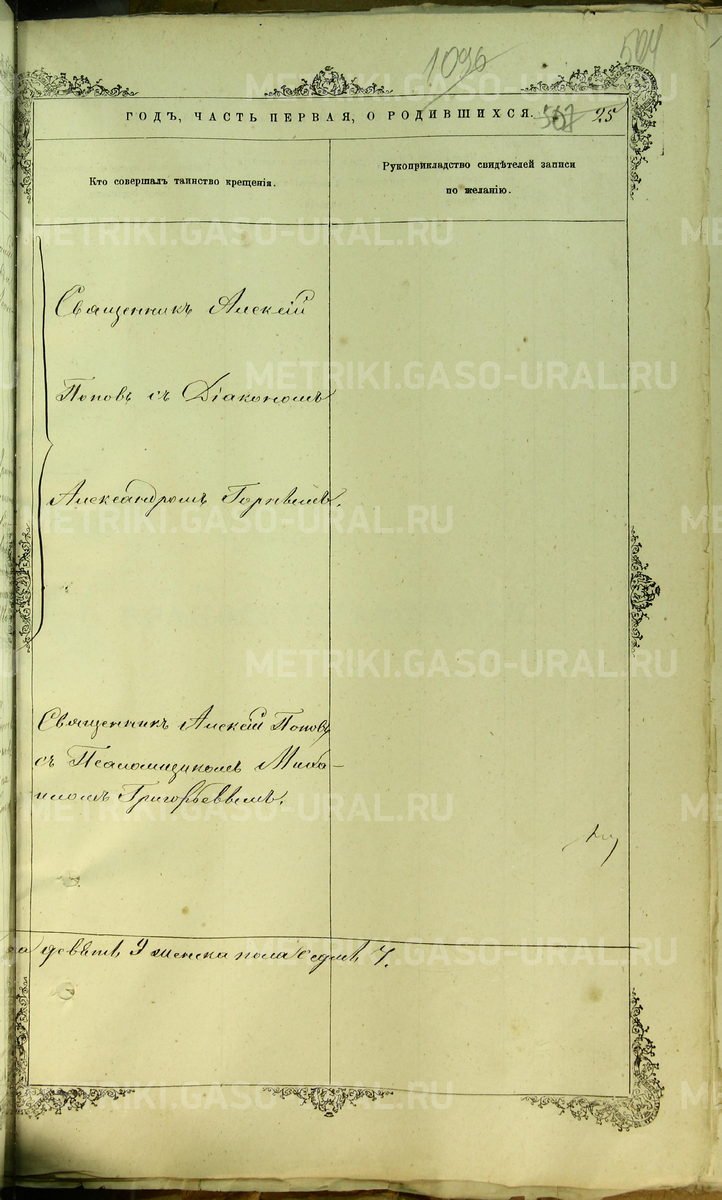 1096
504
ГОДЪ, ЧАСТЬ ПЕРВАЯ, О РОДИВШИХСЯ.
567 25
Кто совершалъ таинство крещенія.
Рукоприкладство свидѣтелей записи
по желанію.
Священникъ Алексій
Поповъ съ Діакономъ
Александромъ Горнымъ.
Священникъ Алексій Поповъ
съ Псаломщикомъ Миха-
иломъ Григорьевымъ.
девять 9 женска пола седмь 7.
METRIKI.GASO-URAL.RU